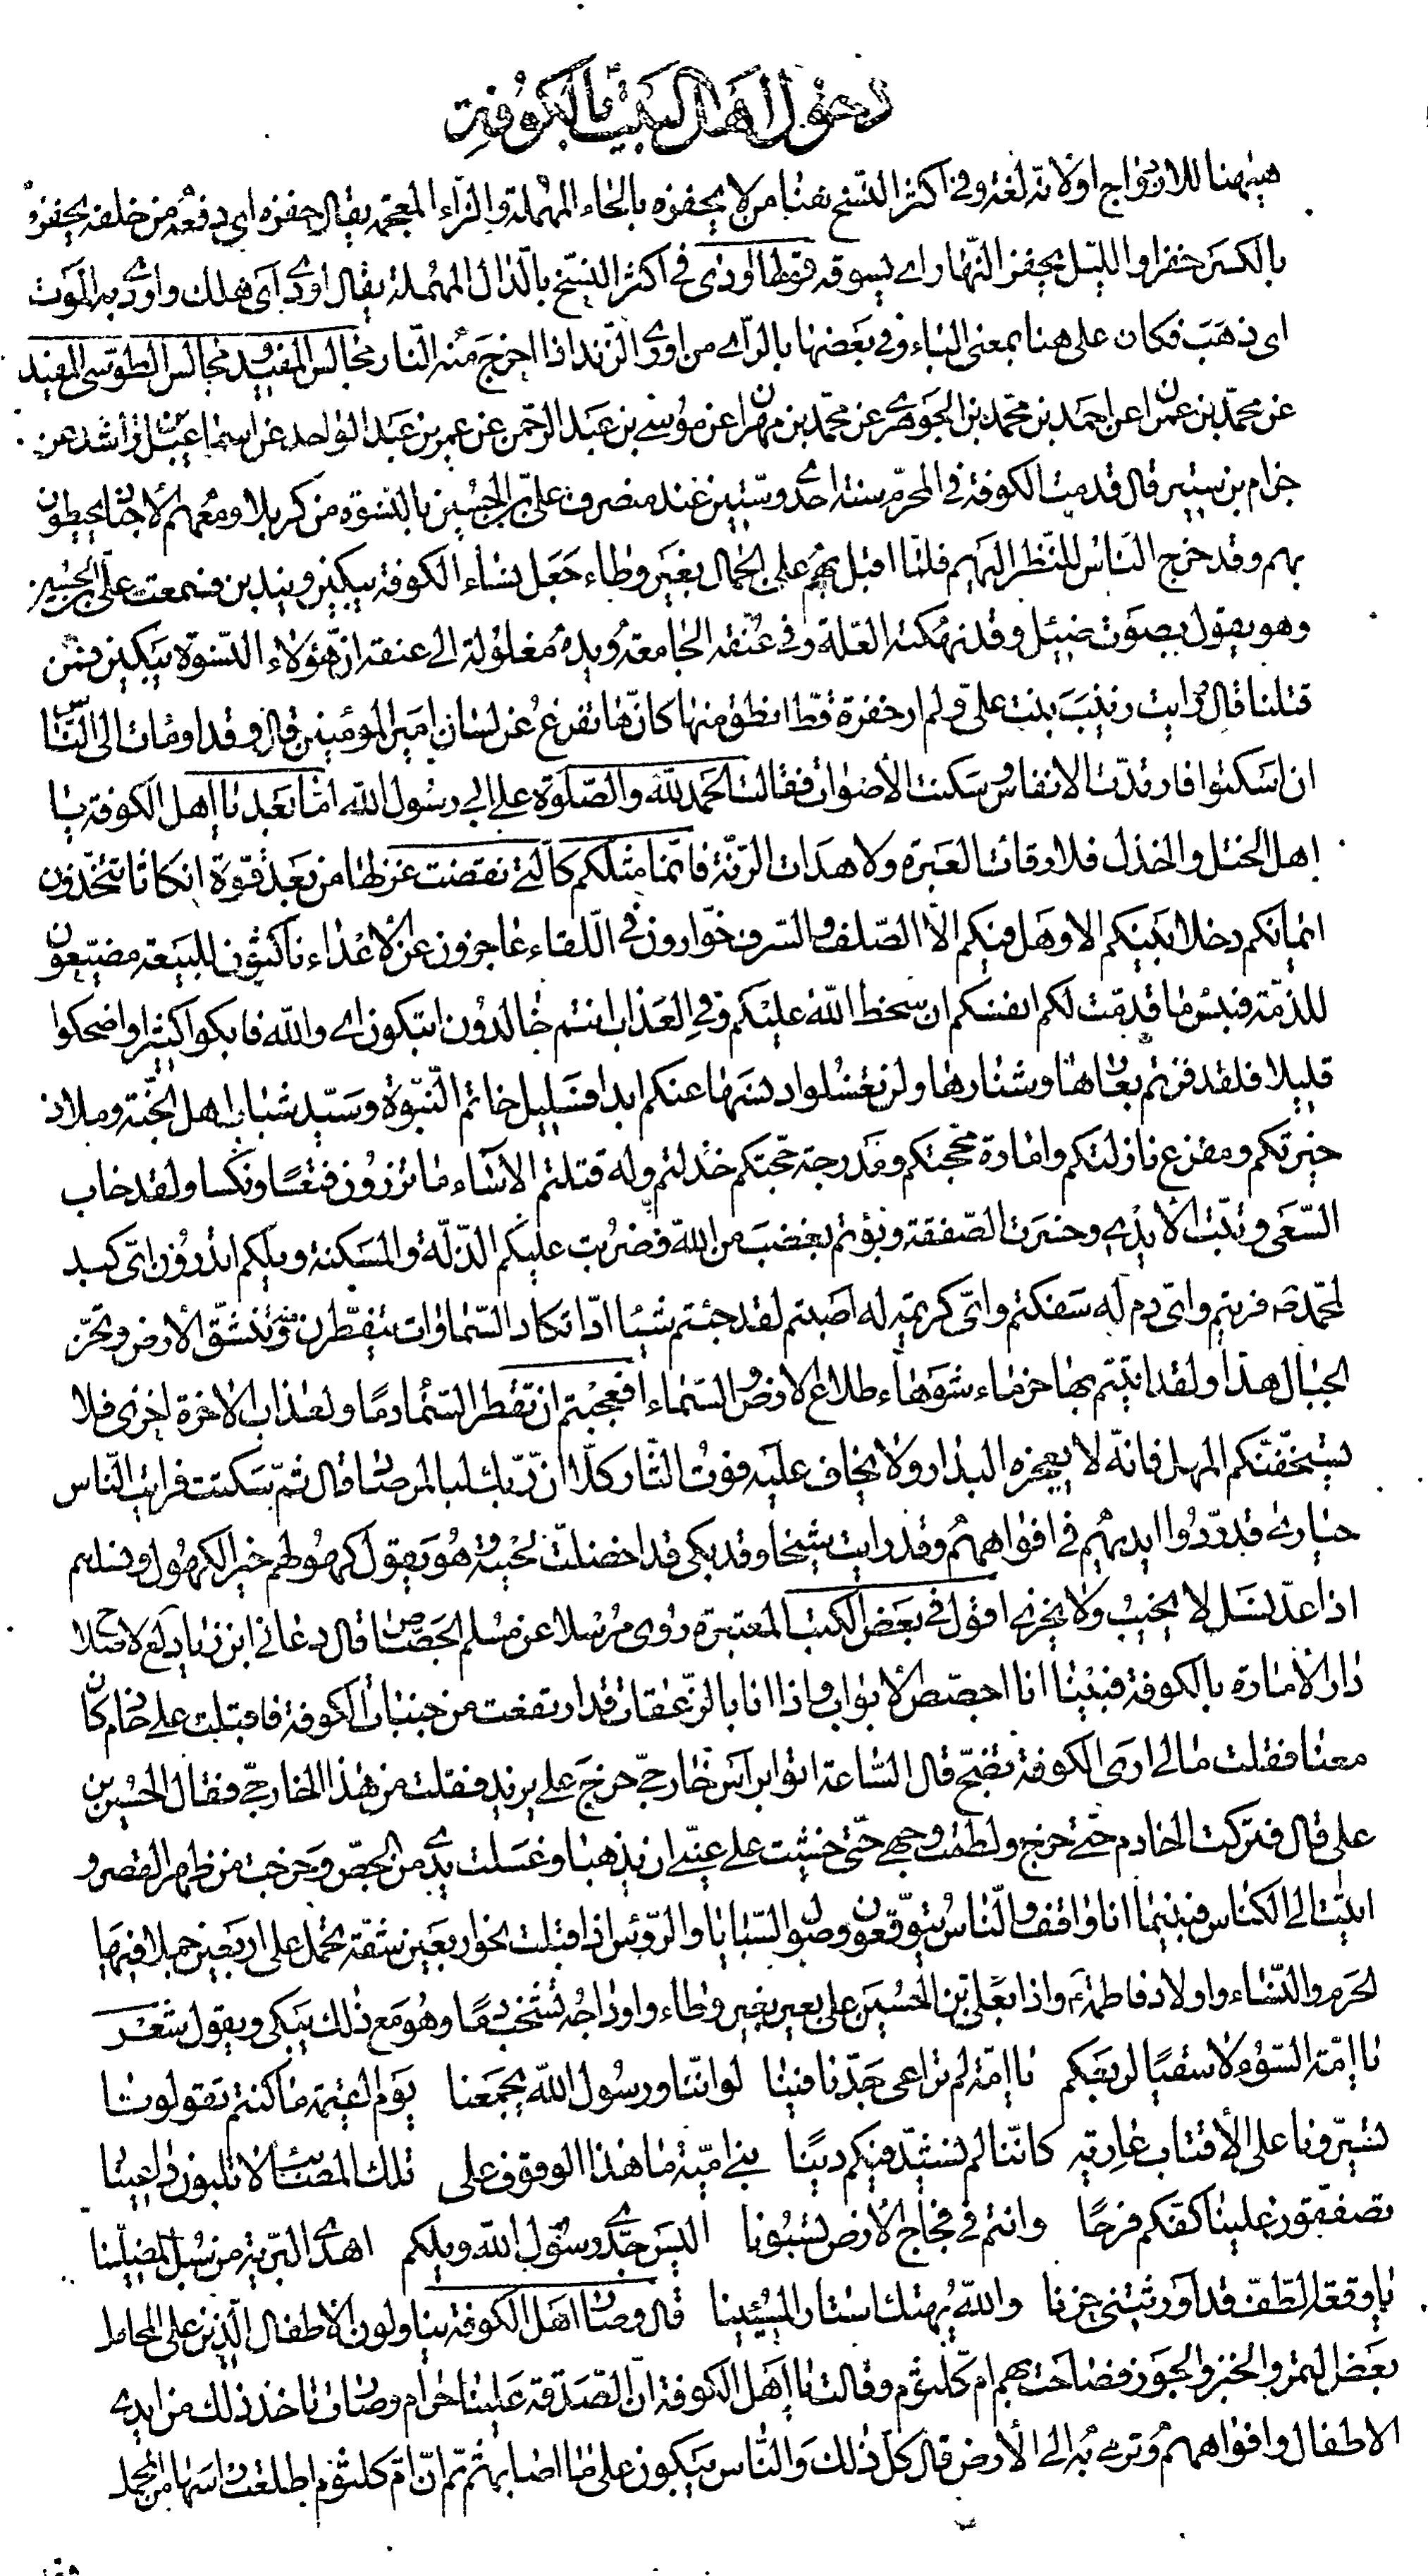 دخول أهل البيت بالكوفة
هيهنا للازدواج او لأنه لغة وفي اكثر النسخ بفنا من لا يحفزه بالحاء المهملة والزاء المعجمة يقال حفزه اي دفعه من خلفه يحفزه
بالكسر حفزا والليل يحفز النهار اي يسوقه قولها اودى في اكثر النسخ بالدال المهملة يقال اودى اى هلك واودى به الموت
اى ذهب فكان على هنا بمعنى الباء وفي بعضها بالراء من اورى الزند اذا اخرج منه النار مجالس المفيد مجالس الطوسي المفيد
عن محمد بن عمران عن احمد بن محمد بن الجوهري عن محمد بن مهران عن موسى بن عبد الرحمن عن عمر بن عبد الواحد عن اسماعيل بن راشد عن
حزام بن ستير قال قدمت الكوفة في المحرم سنة احدى وستين عند منصرف على بن الحسين بالنسوة من كربلا ومعهم الاجناد يحيطون
بهم وقد خرج الناس للنظر اليهم فلما اقبل بهم على الجمال بغير وطاء جعل نساء الكوفة يبكين ويندبن فسمعت على بن الحسين
وهو يقول بصوت ضئيل وقد نهكته العلة وفي عنقه الجامعة ويده مغلولة الى عنقه ان هؤلاء النسوة يبكين فمن
قتلنا قال ورايت زينب بنت على ولم ار خفرة قط انطق منها كانها تفرغ عن لسان امير المؤمنين قال وقد اومات الى الناس
ان اسكتوا فارتدت الانفاس وسكنت الاصوات فقالت الحمد لله والصلوة على ابي رسول الله اما بعد يا اهل الكوفة يا
اهل الختل والخذل فلا رقات العبرة ولا هدات الرنة فانما مثلكم كالتي نقضت غزلها من بعد قوة انكاثا تتخذون
ايمانكم دخلا بينكم الا وهل فيكم الا الصلف والسرف خوارون في اللقاء عاجزون عن الاعداء ناكثون للبيعة مضيعون
للذمة فبئس ما قدمت لكم انفسكم ان سخط الله عليكم وفي العذاب انتم خالدون اتبكون اي والله فابكوا كثيرا واضحكوا
قليلا فلقد فزتم بعارها وشنارها ولن تغسلوا دنسها عنكم ابدا فسليل خاتم النبوة وسيد شباب اهل الجنة وملاذ
خيرتكم ومفزع نازلتكم وامارة محجتكم ومدرجة حجتكم خذلتم وله قتلتم الا ساء ما تزرون فتعسا ونكسا ولقد خاب
السعى وتبت الايدي وخسرت الصفقة وبؤتم بغضب من الله وضربت عليكم الذلة والمسكنة ويلكم اتدرون اى كبد
لمحمد ص فريتم واى دم له سفكتم واى كريمة له اصبتم لقد جئتم شيئا ادا تكاد السماوات يتفطرن منه وتنشق الارض وتخر
الجبال هدا ولقد اتيتم بها خرماء شوهاء طلاع الارض والسماء افعجبتم ان تقطر السماء دما ولعذاب الاخرة اخزى فلا
يستخفنكم المهل فانه لا يحفزه البدار ولا يخاف عليه فوت الثار كلا ان ربك لبالمرصاد قال ثم سكتت فرايت الناس
حيارى قد ردوا ايديهم في افواههم وقد رايت شيخا وقد بكى قد اخضلت لحيته وهو يقول كهولهم خير الكهول ونسلهم
اذا عد نسل لا يخيب ولا يخزى اقول في بعض الكتب المعتبرة روى مرسلا عن مسلم الجصاص قال دعاني ابن زياد لع لاصلاح
دار الامارة بالكوفة فبينما انا اجصص الابواب واذا انا بالزعقات قد ارتفعت من جنبات الكوفة فاقبلت على خادم كان
معنا فقلت مالي ارى الكوفة تضج قال الساعة اتوا براس خارجي خرج على يزيد فقلت من هذا الخارجي فقال الحسين بن
على قال فتركت الخادم حتى خرج ولطمت وجهي حتى خشيت على عيني ان يذهبا وغسلت يدي من الجص وخرجت من ظهر القصر و
اتيت الى الكناس فبينما انا واقف والناس يتوقعون وصول السبايا والرؤس اذ اقبلت نحو اربعين شقة تحمل على اربعين جملا فيها
الحرم والنساء واولاد فاطمة واذا بعلى بن الحسين على بعير بغير وطاء واوداجه تشخب دما وهو مع ذلك يبكى ويقول شعر
يا امة السوء لا سقيا لربعكم يا امة لم تراعى جدنا فينا لو اننا ورسول الله يجمعنا يوم القيمة ما كنتم تقولونا
تسيرونا على الاقتاب عارية كاننا لم نشيد فيكم دينا بني امية ما هذا الوقوف على تلك المصائب لا تلبون داعينا
تصفقون علينا كفكم فرحا وانتم في فجاج الارض تسبونا اليس جدى رسول الله ويلكم اهدى البرية من سبل المضلينا
يا وقعة الطف قد اورثتني حزنا والله يهتك استار المسيئينا قال وصار اهل الكوفة يناولون الاطفال الذين على المحامل
بعض التمر والخبز والجوز فصاحت بهم ام كلثوم وقالت يا اهل الكوفة ان الصدقة علينا حرام وصارت تاخذ ذلك من ايدي
الاطفال وافواههم وترمي به الى الارض قال كل ذلك والناس يبكون على ما اصابهم ثم ان ام كلثوم اطلعت راسها من المحمل